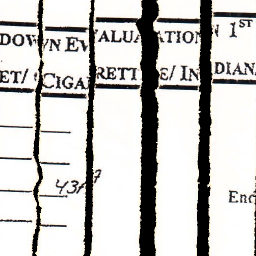 DOWN EVALUATION 1ST
ET/ CIGARETTE/ INDIANA
43A
End